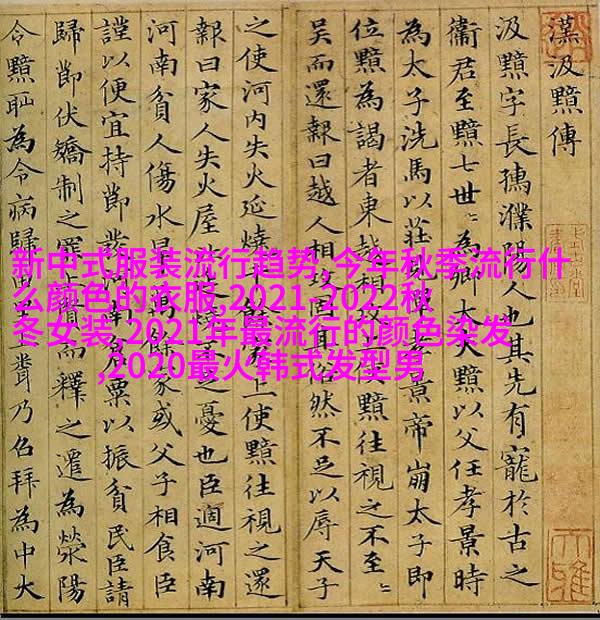 新中式服装流行趋势,今年秋季流行什
么颜色的衣服,2021-2022秋
冬女装,2021年最流行的颜色染发
,2020最火韩式发型男
漢汲黯傳
汲黯字長孺濮陽人也其先有寵於古之
衞君至黯七世〻為卿大夫黯以父任孝景時
為太子洗馬以莊見憚孝景帝崩太子即
位黯為謁者東越相攻上使黯往視之不至〻
吳而還報曰越人相攻固其俗然不足以辱天子
之使河內失火延燒千餘家上使黯往視之還
報曰家人失火屋憂也臣過河南
河南貧人傷水旱萬餘家或父子相食臣
謹以便宜持節發河南倉粟以振貧民臣請
歸節伏矯制之罪上賢而釋之遷為滎陽
令黯恥為令病歸田里上乃召拜為中大